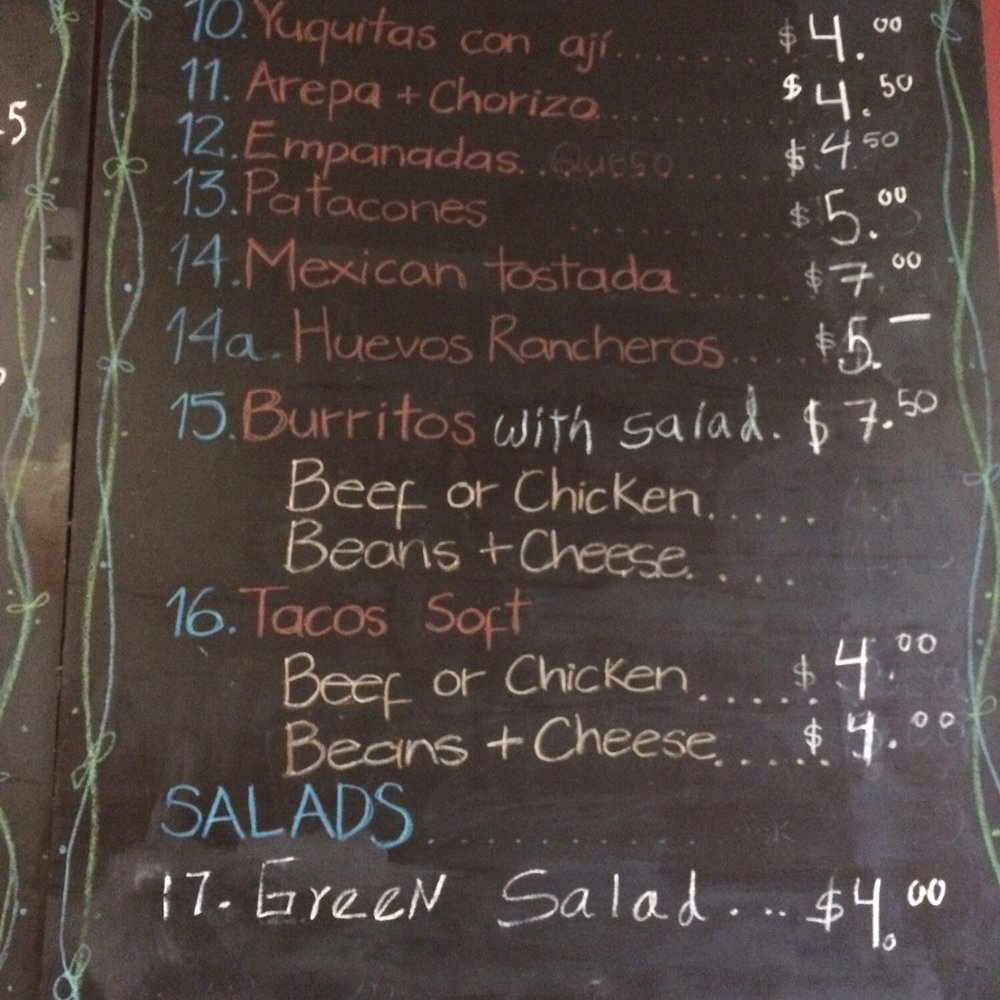 10. Yuquitas con ají........ $4.00
11. Arepa + Chorizo............ $4.50
12. Empanadas..Queso..... $4 50
13. Patacones ............ $5.00
14. Mexican tostada...... $7.00
14a. Huevos Rancheros.... $5.—
15. Burritos with salad. $7.50
Beef or Chicken......
Beans + Cheese....
16. Tacos Soft
Beef or Chicken...... $4.00
Beans + Cheese...... $4.00
SALADS..............
17. Green Salad... $4.00
5